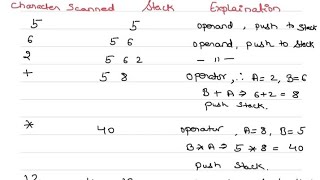 Character Scanned Stack Explaination
5 5 operand, push to Stack
6 5 6 operand, push to Stack
2 5 6 2 — 11 —
+ 5 8 operator, ∴ A=2, B=6
B + A ⇒ 6+2 = 8
Push Stack.
* 40 operator, A=8, B=5
B * A ⇒ 5 * 8 = 40
Push Stack.